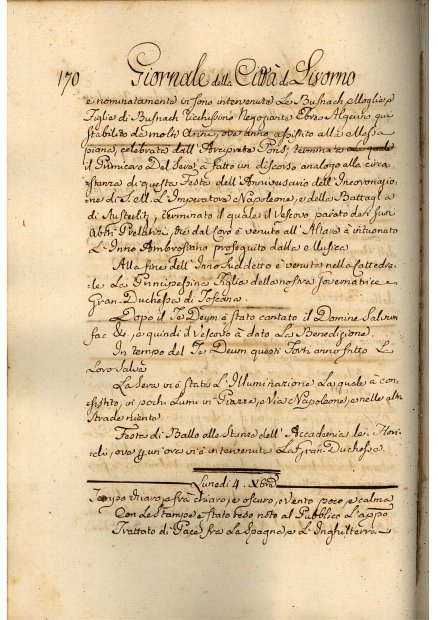 170 Giornale della Città di Livorno
e nominatamente vi sono intervenute La Busnach Moglie, e
Figlia di Busnach Ricchissimo Negoziante Ebreo Algerino qui
stabilito da molti Anni, ove anno assistito alla Messa
piana, celebrata dall'Arciprete Pons, terminata
il Primicero Del Seva, à fatto un discorso analogo alla circo
stanza di questa Festa dell'Anniversario dell'Incoronazio
ne di S. M. L'Imperatore Napoleone, e della Battaglia
di Austerliz, terminato il quale il Vescovo parato de suoi
Abiti Prelatizi, che dal Coro è venuto all'Altare à intuonato
L'Inno Ambrosiano proseguito dalla Musica
Alla fine dell'Inno suddetto è venuta nella Cattedra
le La Principessina Figlia della nostra Governatrice e
Gran-Duchessa di Toscana
Dopo il Te Deum è stato cantato il Domine Salvum
fac &c, e quindi il Vescovo à dato La Benedizione.
In tempo del Te Deum questi Forti anno fatto La
Loro Salva
La Sera vi è stata L'Illuminazione La quale à con
sistito, in pochi Lumi in Piazza, e Via Napoleone, e nelle altre
Strade niente
Festa di Ballo alle Stanze dell'Accademia dei Flori
ove un'ora vi è intervenuta La Gran-Duchessa
Lunedi 4. Xbre
Tempo chiaro, e fra chiaro, e oscuro, e vento poco, e calma
Con Le Stampe è stato reso noto al Pubblico L'appo
Trattato di Pace fra La Spagna, e L'Inghilterra